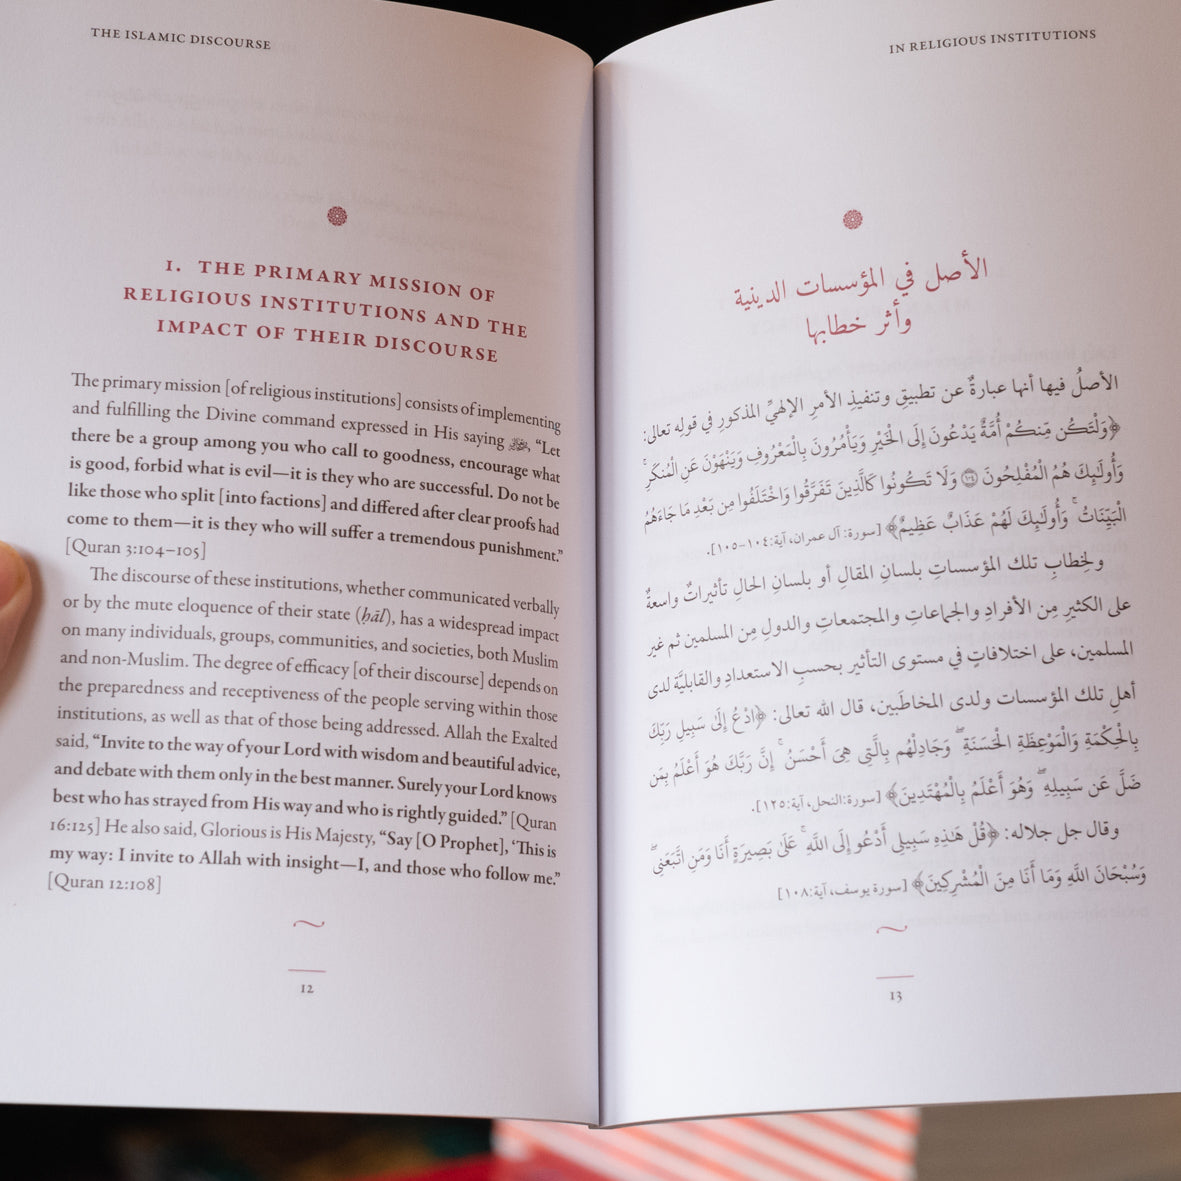 THE ISLAMIC DISCOURSE
1. THE PRIMARY MISSION OF
RELIGIOUS INSTITUTIONS AND THE
IMPACT OF THEIR DISCOURSE
The primary mission [of religious institutions] consists of implementing
and fulfilling the Divine command expressed in His saying ﷻ, “Let
there be a group among you who call to goodness, encourage what
is good, forbid what is evil—it is they who are successful. Do not be
like those who split [into factions] and differed after clear proofs had
come to them—it is they who will suffer a tremendous punishment.”
[Quran 3:104–105]
The discourse of these institutions, whether communicated verbally
or by the mute eloquence of their state (ḥāl), has a widespread impact
on many individuals, groups, communities, and societies, both Muslim
and non-Muslim. The degree of efficacy [of their discourse] depends on
the preparedness and receptiveness of the people serving within those
institutions, as well as that of those being addressed. Allah the Exalted
said, “Invite to the way of your Lord with wisdom and beautiful advice,
and debate with them only in the best manner. Surely your Lord knows
best who has strayed from His way and who is rightly guided.” [Quran
16:125] He also said, Glorious is His Majesty, “Say [O Prophet], ‘This is
my way: I invite to Allah with insight—I, and those who follow me.”
[Quran 12:108]
12
IN RELIGIOUS INSTITUTIONS
الأصل في المؤسسات الدينية
وأثر خطابها
الأصلُ فيها أنها عبارةٌ عن تطبيقِ وتنفيذِ الأمرِ الإلهيِّ المذكورِ في قولِه تعالى:
﴿وَلْتَكُن مِّنكُمْ أُمَّةٌ يَدْعُونَ إِلَى الْخَيْرِ وَيَأْمُرُونَ بِالْمَعْرُوفِ وَيَنْهَوْنَ عَنِ الْمُنكَرِ ۚ
وَأُولَٰئِكَ هُمُ الْمُفْلِحُونَ ۝١٠٤ وَلَا تَكُونُوا كَالَّذِينَ تَفَرَّقُوا وَاخْتَلَفُوا مِن بَعْدِ مَا جَاءَهُمُ
الْبَيِّنَاتُ ۚ وَأُولَٰئِكَ لَهُمْ عَذَابٌ عَظِيمٌ﴾ [سورة: آل عمران، آية: ١٠٤-١٠٥].
ولِخطابِ تلك المؤسساتِ بلسانِ المقالِ أو بلسانِ الحالِ تأثيراتٌ واسعةٌ
على الكثيرِ مِن الأفرادِ والجماعاتِ والمجتمعاتِ والدولِ مِن المسلمين ثم غير
المسلمين، على اختلافاتٍ في مستوى التأثير بحسبِ الاستعدادِ والقابليَّة لدى
أهلِ تلك المؤسسات ولدى المخاطَبين، قال الله تعالى: ﴿ادْعُ إِلَىٰ سَبِيلِ رَبِّكَ
بِالْحِكْمَةِ وَالْمَوْعِظَةِ الْحَسَنَةِ ۖ وَجَادِلْهُم بِالَّتِي هِيَ أَحْسَنُ ۚ إِنَّ رَبَّكَ هُوَ أَعْلَمُ بِمَن
ضَلَّ عَن سَبِيلِهِ ۖ وَهُوَ أَعْلَمُ بِالْمُهْتَدِينَ﴾ [سورة: النحل، آية: ١٢٥].
وقال جل جلاله: ﴿قُلْ هَٰذِهِ سَبِيلِي أَدْعُو إِلَى اللَّهِ ۚ عَلَىٰ بَصِيرَةٍ أَنَا وَمَنِ اتَّبَعَنِي ۖ
وَسُبْحَانَ اللَّهِ وَمَا أَنَا مِنَ الْمُشْرِكِينَ﴾ [سورة يوسف، آية: ١٠٨]
13